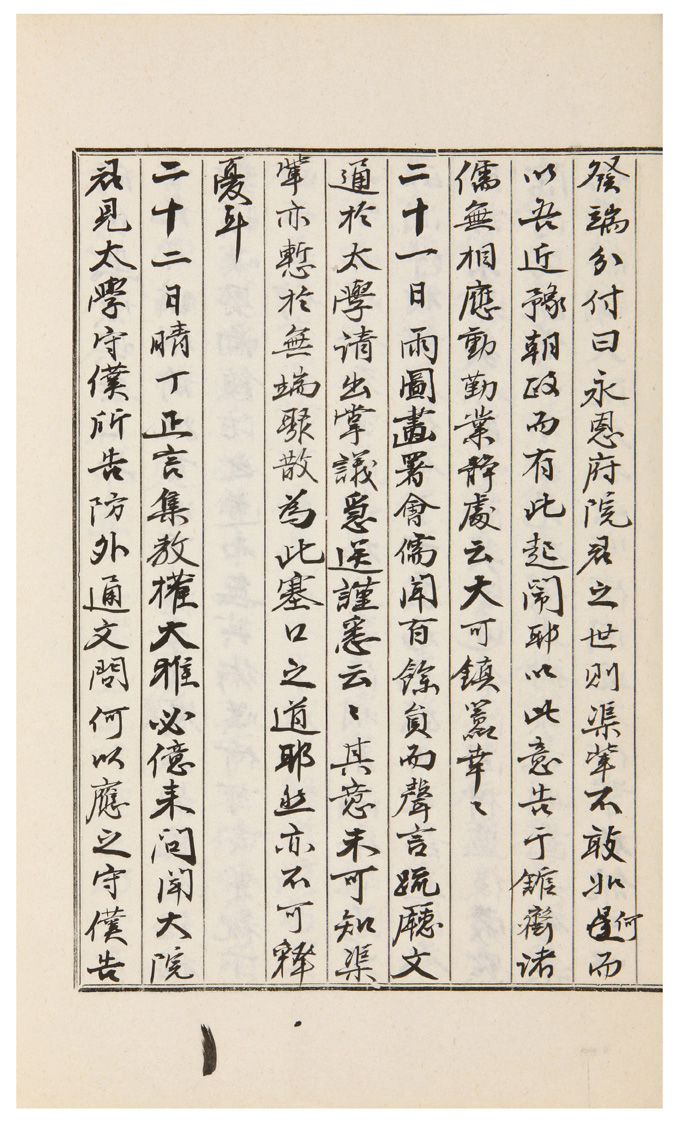 發端分付曰永恩府院君之世則渠輩不敢如是何而
以吾近豫朝政而有此起鬧耶以此意告于館齋諸
儒無相應動勤業靜處云大可鎮囂幸〻
二十一日雨圖畫署會儒聞百餘員而聲言疏廳文
通於太學請出掌議爲送謹悉云〻其意未可知渠
輩亦慙於無端聚散為此塞口之道耶然亦不可釋
憂耳
二十二日晴丁正言集教權大雅必億来问聞大院
君見太學守僕所告防外通文問何以應之守僕告